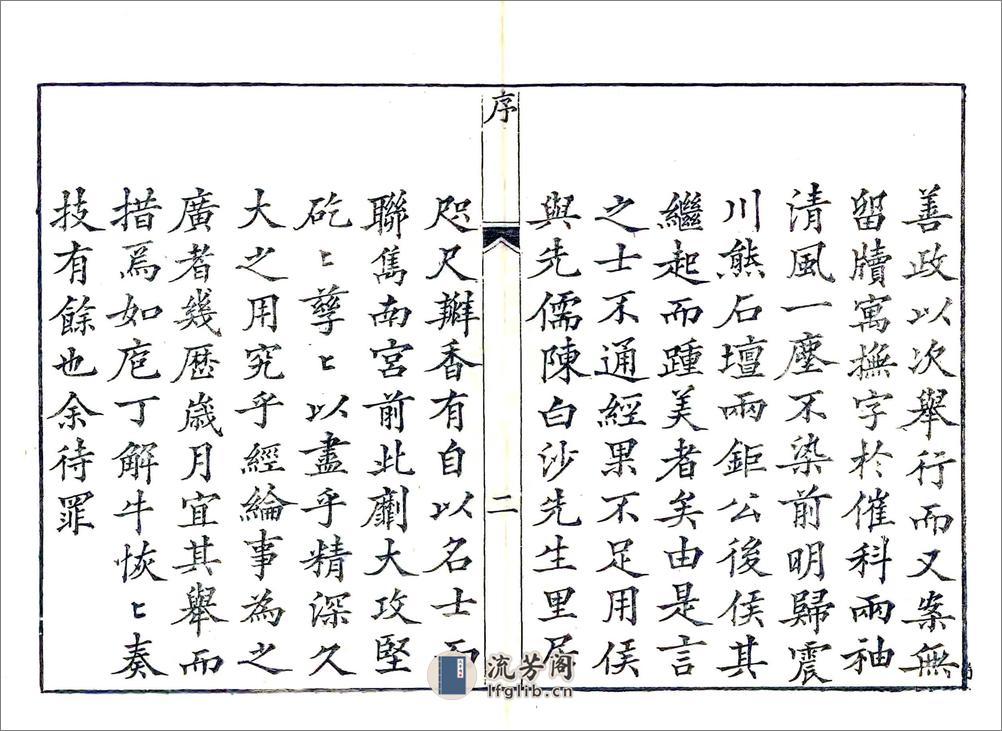 善政以次舉行而又案無
留牘寓撫字於催科兩袖
清風一塵不染前明歸震
川熊石壇兩鉅公後侯其
繼起而踵美者矣由是言
之士不通經果不足用侯
與先儒陳白沙先生里居
序
二
咫尺瓣香有自以名士而
聯雋南宮前此劘大攻堅
矻〻孳〻以盡乎精深久
大之用究乎經綸事為之
廣者幾歷歲月宜其舉而
措焉如庖丁解牛恢〻奏
技有餘也余待罪
流芳阁
lfglib.cn